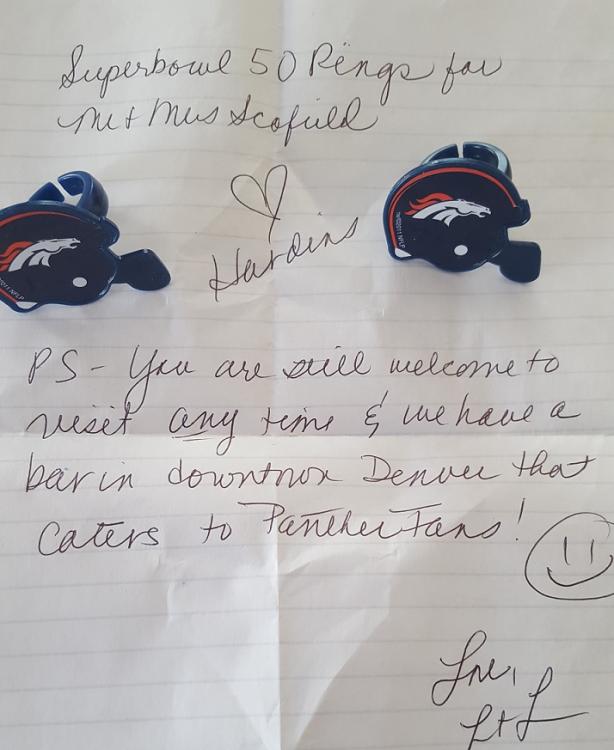 Superbowl 50 Rings for
Mr & Mrs Scofield
♡
Hardins
PS - You are still welcome to
visit any time & we have a
bar in downtown Denver that
caters to Panther Fans!
Love,
L + L